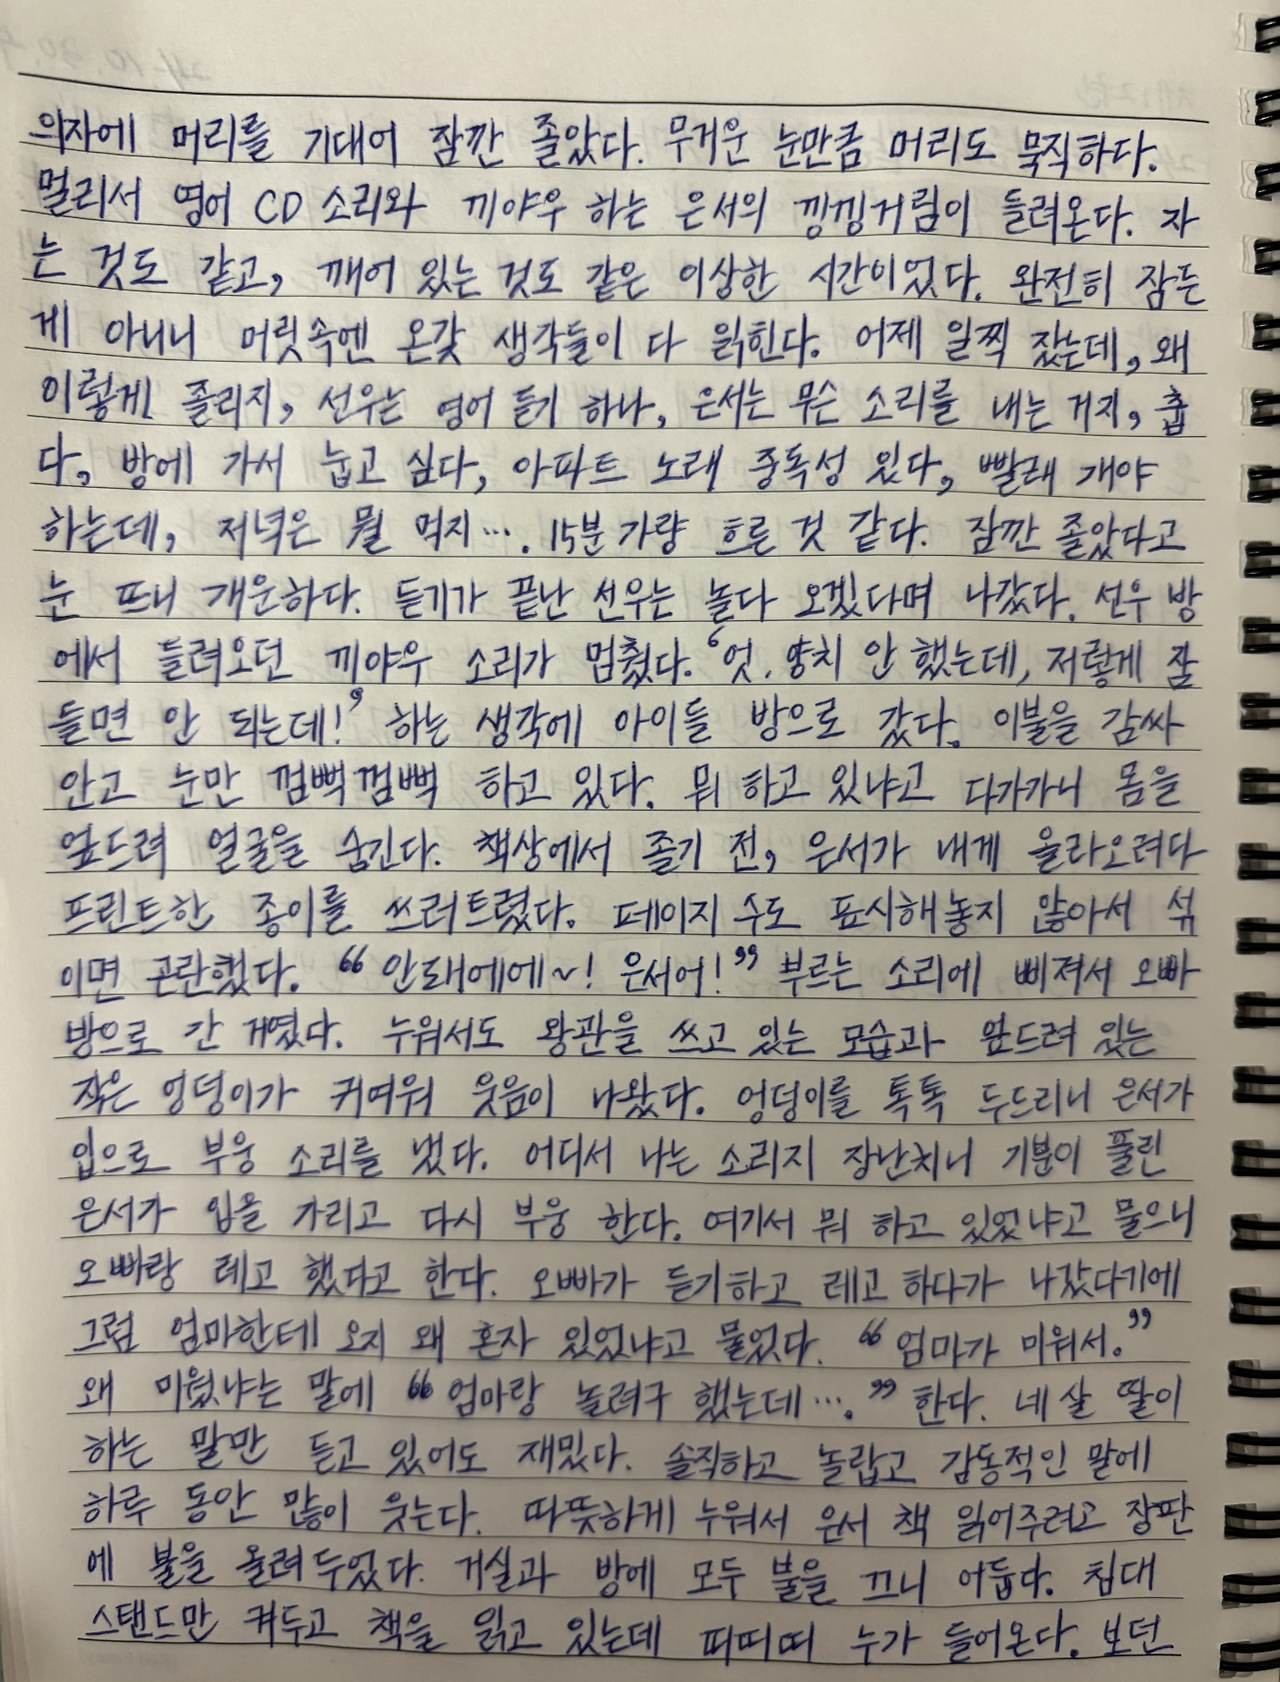 의자에 머리를 기대어 잠깐 졸았다. 무거운 눈만큼 머리도 묵직하다.
멀리서 영어 CD 소리와 끼야우 하는 은서의 낑낑거림이 들려온다. 자
는 것도 같고, 깨어 있는 것도 같은 이상한 시간이었다. 완전히 잠든
게 아니니 머릿속엔 온갖 생각들이 다 읽힌다. 어제 일찍 잤는데, 왜
이렇게 졸리지, 선우는 영어 듣기 하나, 은서는 무슨 소리를 내는 거지, 춥
다, 방에 가서 눕고 싶다, 아파트 노래 중독성 있다, 빨래 개야
하는데, 저녁은 뭘 먹지…. 15분 가량 흐른 것 같다. 잠깐 졸았다고
눈 뜨니 개운하다. 듣기가 끝난 선우는 놀다 오겠다며 나갔다. 선우 방
에서 들려오던 끼야우 소리가 멈췄다. ‘엇. 양치 안 했는데, 저렇게 잠
들면 안 되는데!’ 하는 생각에 아이들 방으로 갔다. 이불을 감싸
안고 눈만 껌뻑껌뻑 하고 있다. 뭐 하고 있냐고 다가가니 몸을
엎드려 얼굴을 숨긴다. 책상에서 졸기 전, 은서가 내게 올라오려다
프린트한 종이를 쓰러트렸다. 페이지 수도 표시해놓지 않아서 섞
이면 곤란했다. “안돼에에~! 은서어!” 부르는 소리에 삐져서 오빠
방으로 간 거였다. 누워서도 왕관을 쓰고 있는 모습과 엎드려 있는
작은 엉덩이가 귀여워 웃음이 나왔다. 엉덩이를 톡톡 두드리니 은서가
입으로 부웅 소리를 냈다. 어디서 나는 소리지 장난치니 기분이 풀린
은서가 입을 가리고 다시 부웅 한다. 여기서 뭐 하고 있었냐고 물으니
오빠랑 레고 했다고 한다. 오빠가 듣기하고 레고 하다가 나갔다기에
그럼 엄마한테 오지 왜 혼자 있었냐고 물었다. “엄마가 미워서.”
왜 미웠냐는 말에 “엄마랑 놀려구 했는데….” 한다. 네 살 딸이
하는 말만 듣고 있어도 재밌다. 솔직하고 놀랍고 감동적인 말에
하루 동안 많이 웃는다. 따뜻하게 누워서 은서 책 읽어주려고 장판
에 불을 올려 두었다. 거실과 방에 모두 불을 끄니 어둡다. 침대
스탠드만 켜두고 책을 읽고 있는데 띠띠띠 누가 들어온다. 보던